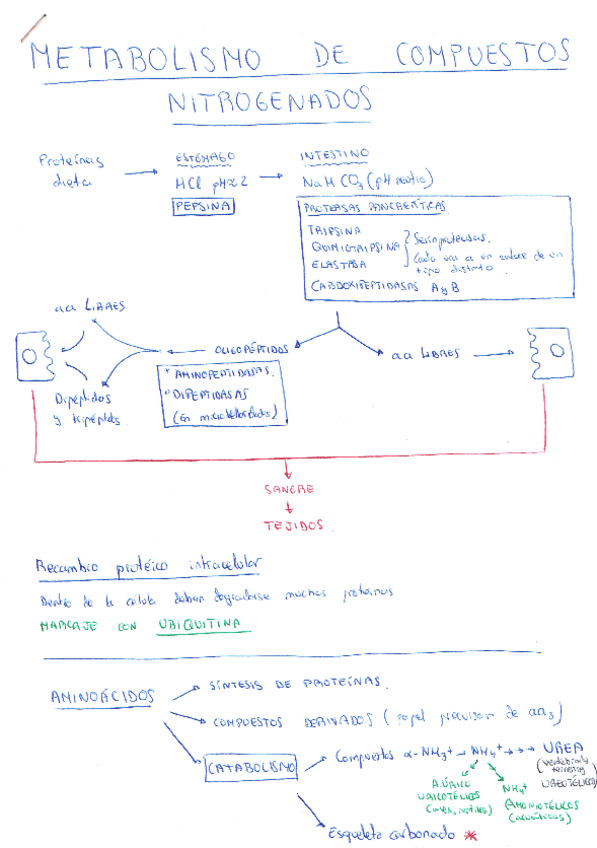 METABOLISMO DE COMPUESTOS
NITROGENADOS
Proteínas
dieta
ESTÓMAGO
HCl pH≈2
PEPSINA
INTESTINO
NaHCO3 (pH neutro)
PROTEASAS PANCREÁTICAS
TRIPSINA
QUIMIOTRIPSINA
ELASTASA
Serinproteasas.
Cada una a un enlace de un
tipo distinto.
CARBOXIPEPTIDASAS A y B
aa LIBRES
OLIGOPÉPTIDOS
* AMINOPEPTIDASAS.
* DIPEPTIDASAS
(En microvellosidades)
aa LIBRES
Dipéptidos
y tripéptidos
SANGRE
TEJIDOS
Recambio protéico intracelular
Dentro de la célula deben degradarse muchas proteínas
MARCAJE CON UBIQUITINA
AMINOÁCIDOS
SÍNTESIS DE PROTEÍNAS.
COMPUESTOS DERIVADOS (papel precursor de aas)
CATABOLISMO
Compuestos α-NH3+ → NH4+ →→→ UREA
(vertebrados
terrestres
UREOTÉLICOS)
A.ÚRICO
URICOTÉLICOS
(aves, reptiles)
NH4+
AMONIOTÉLICOS
(acuáticos)
Esqueleto carbonado *